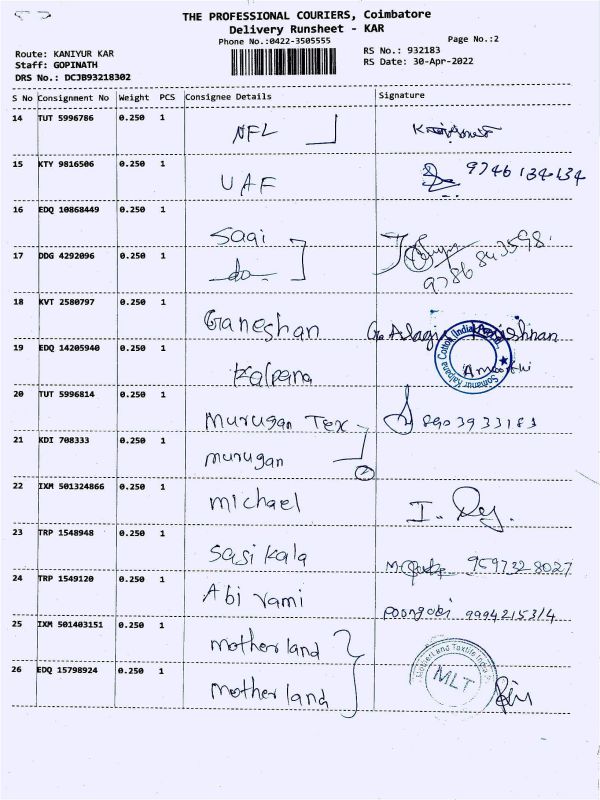 THE PROFESSIONAL COURIERS, Coimbatore
Delivery Runsheet - KAR
Phone No.:0422-3505555
Page No.:2
Route: KANIYUR KAR
RS No.: 932183
Staff: GOPINATH
RS Date: 30-Apr-2022
DRS No.: DCJB93218302
S No Consignment No Weight PCS Consignee Details Signature
14 TUT 5996786 0.250 1 NFL
15 KTY 9816506 0.250 1 UAF 9746134134
16 EDQ 10868449 0.250 1 Sagi
17 DDG 4292096 0.250 1 do 9786843598
18 KVT 2580797 0.250 1 Ganeshan
19 EDQ 14205940 0.250 1 Kalpana
20 TUT 5996814 0.250 1 Murugan Tex 8903933183
21 KDI 708333 0.250 1 murugan 2
22 IXM 501324866 0.250 1 michael
23 TRP 1548948 0.250 1 Sasi kala 959732 8027
24 TRP 1549120 0.250 1 Abi rami 9994215314
25 IXM 501403151 0.250 1 motherland
26 EDQ 15798924 0.250 1 motherland MLT